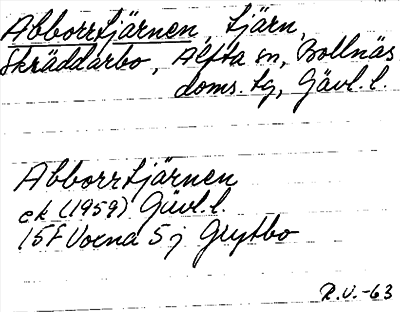 Abborrtjärnen, tjärn,
Skräddarbo, Alfta sn, Bollnäs
doms. tg, Gävl. l.
Abborrtjärnen
ek (1959) Gävl. l.
15F Voxna 5j Grytbo
R.V.-63